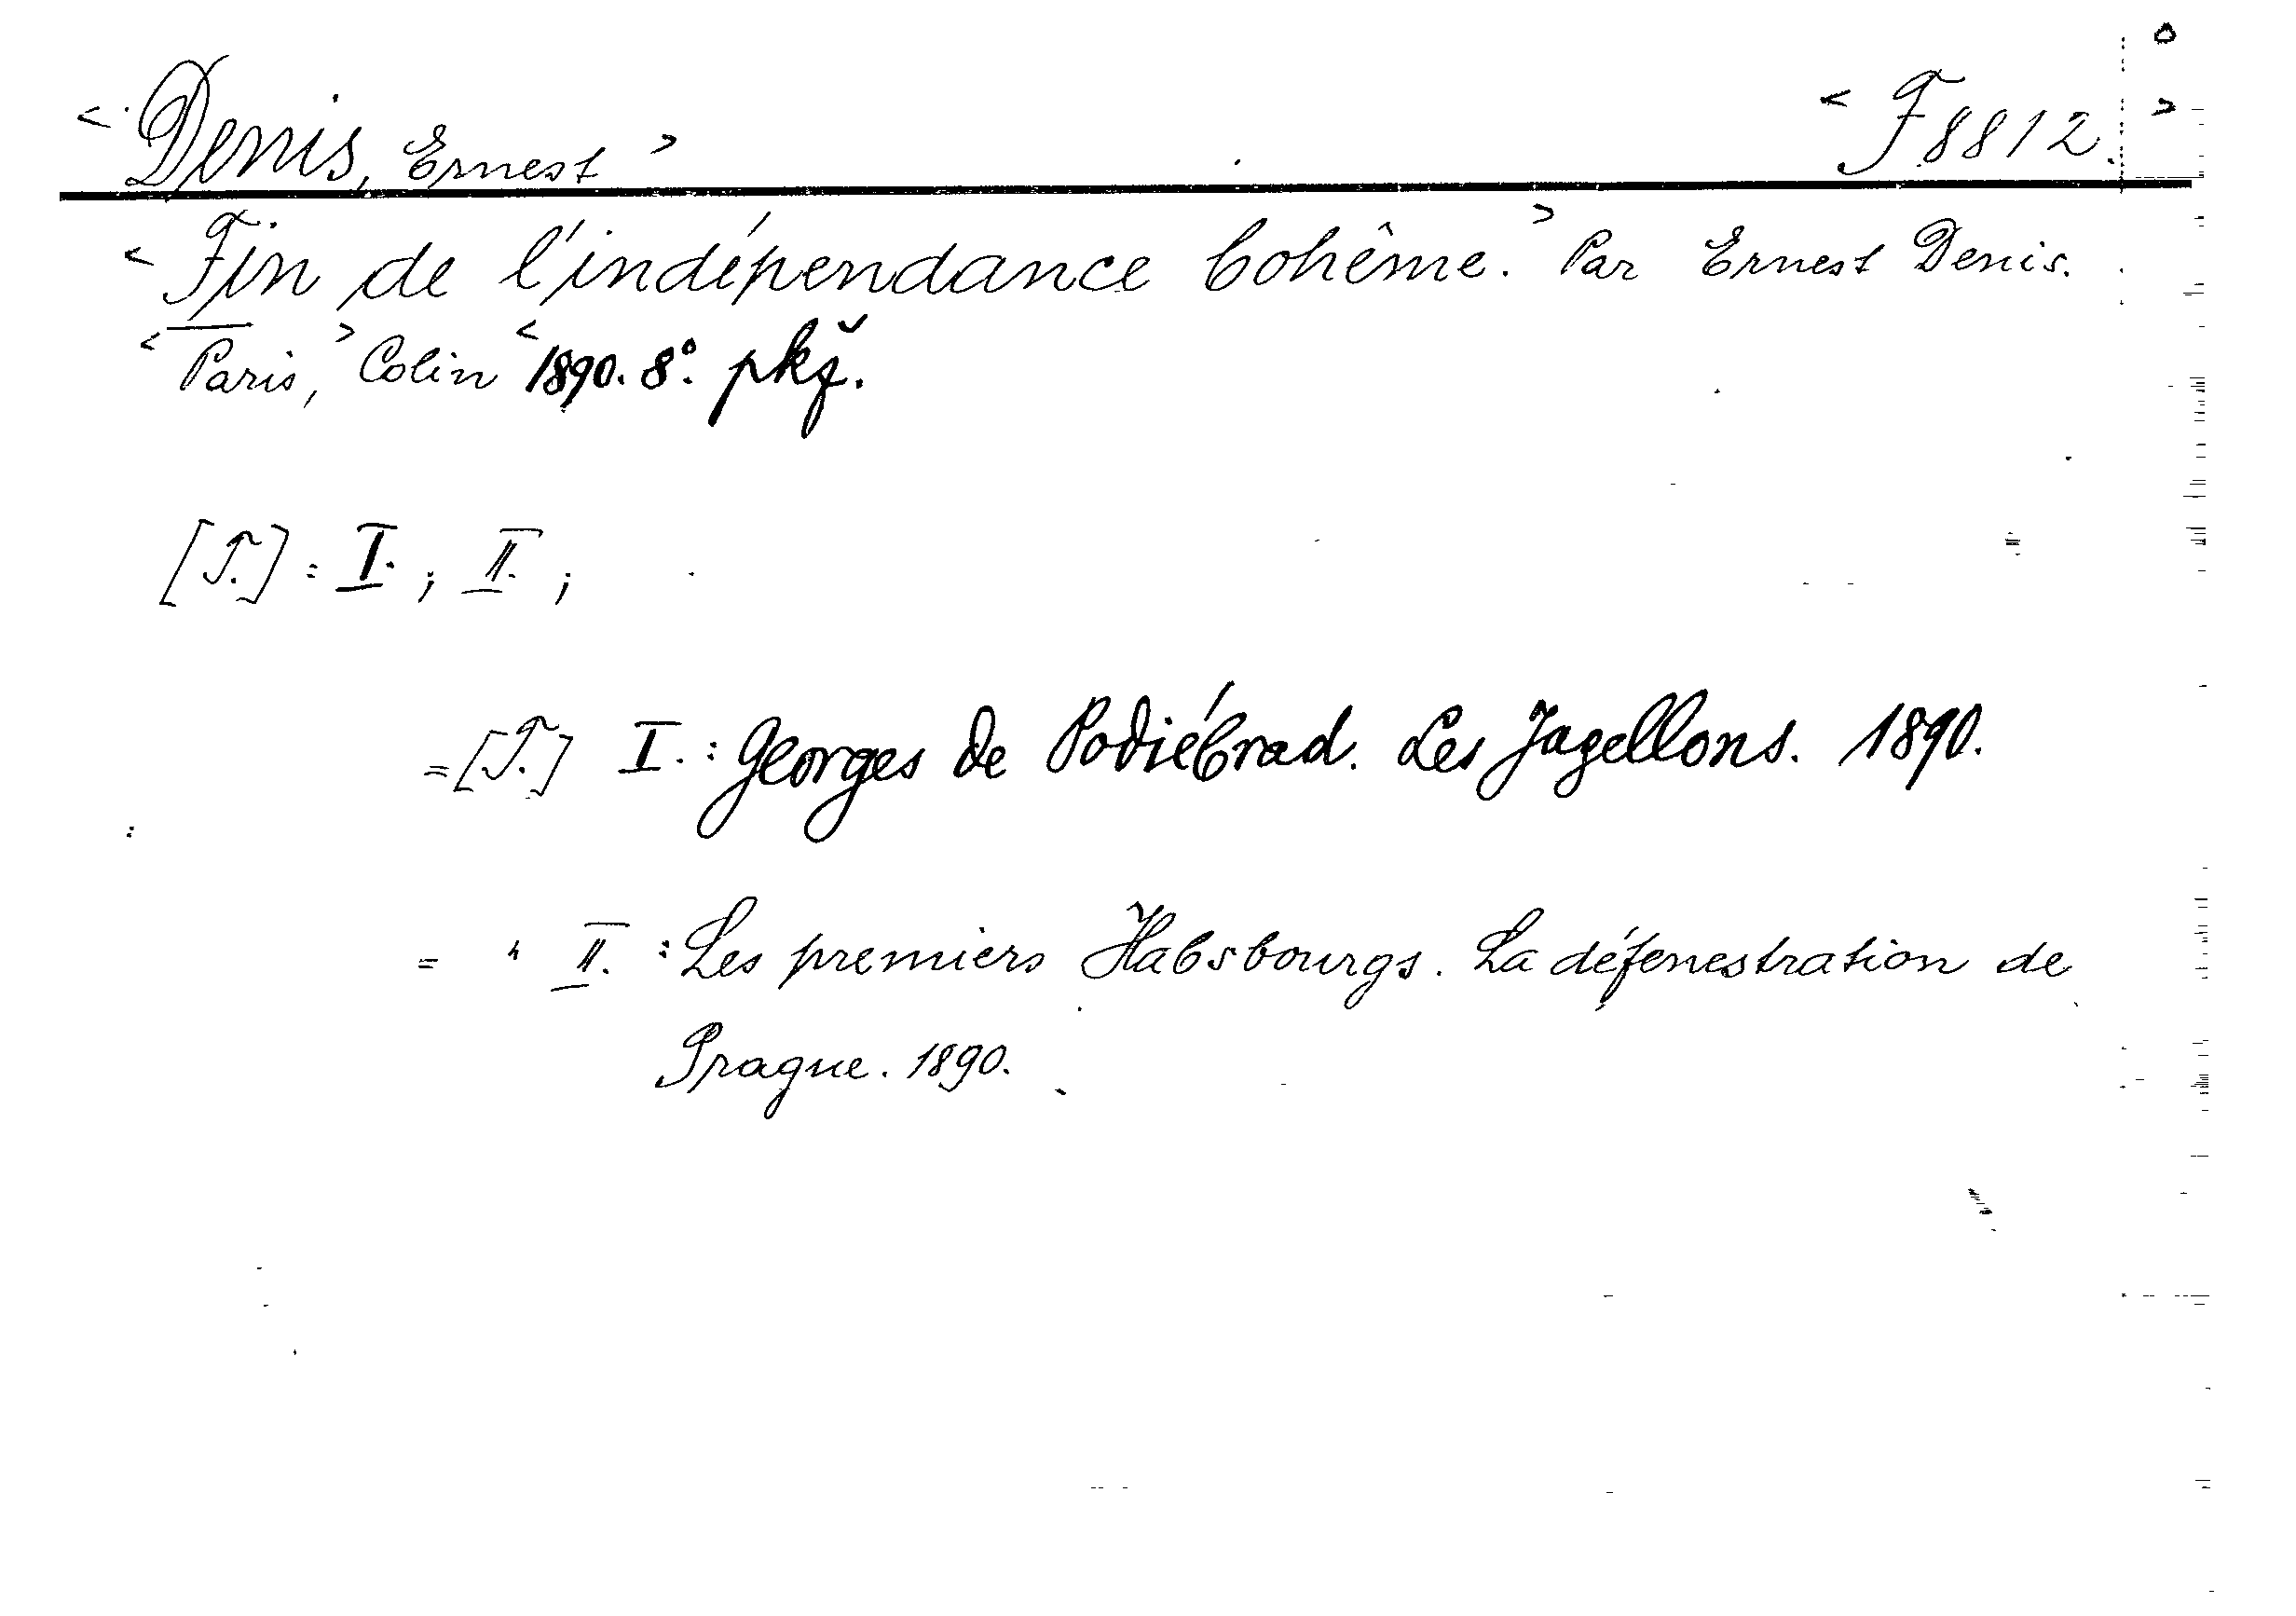 < Denis, Ernest > < F 8812. >
< Fin de l'indépendance bohême. > Par Ernest Denis.
< Paris, > Colin < 1890. 8°. pkž.
[T.] : I. ; II. ;
= [T.] I. : Georges de Podiébrad. Les Jagellons. 1890.
= " II. : Les premiers Habsbourgs. La défenestration de
Prague. 1890.